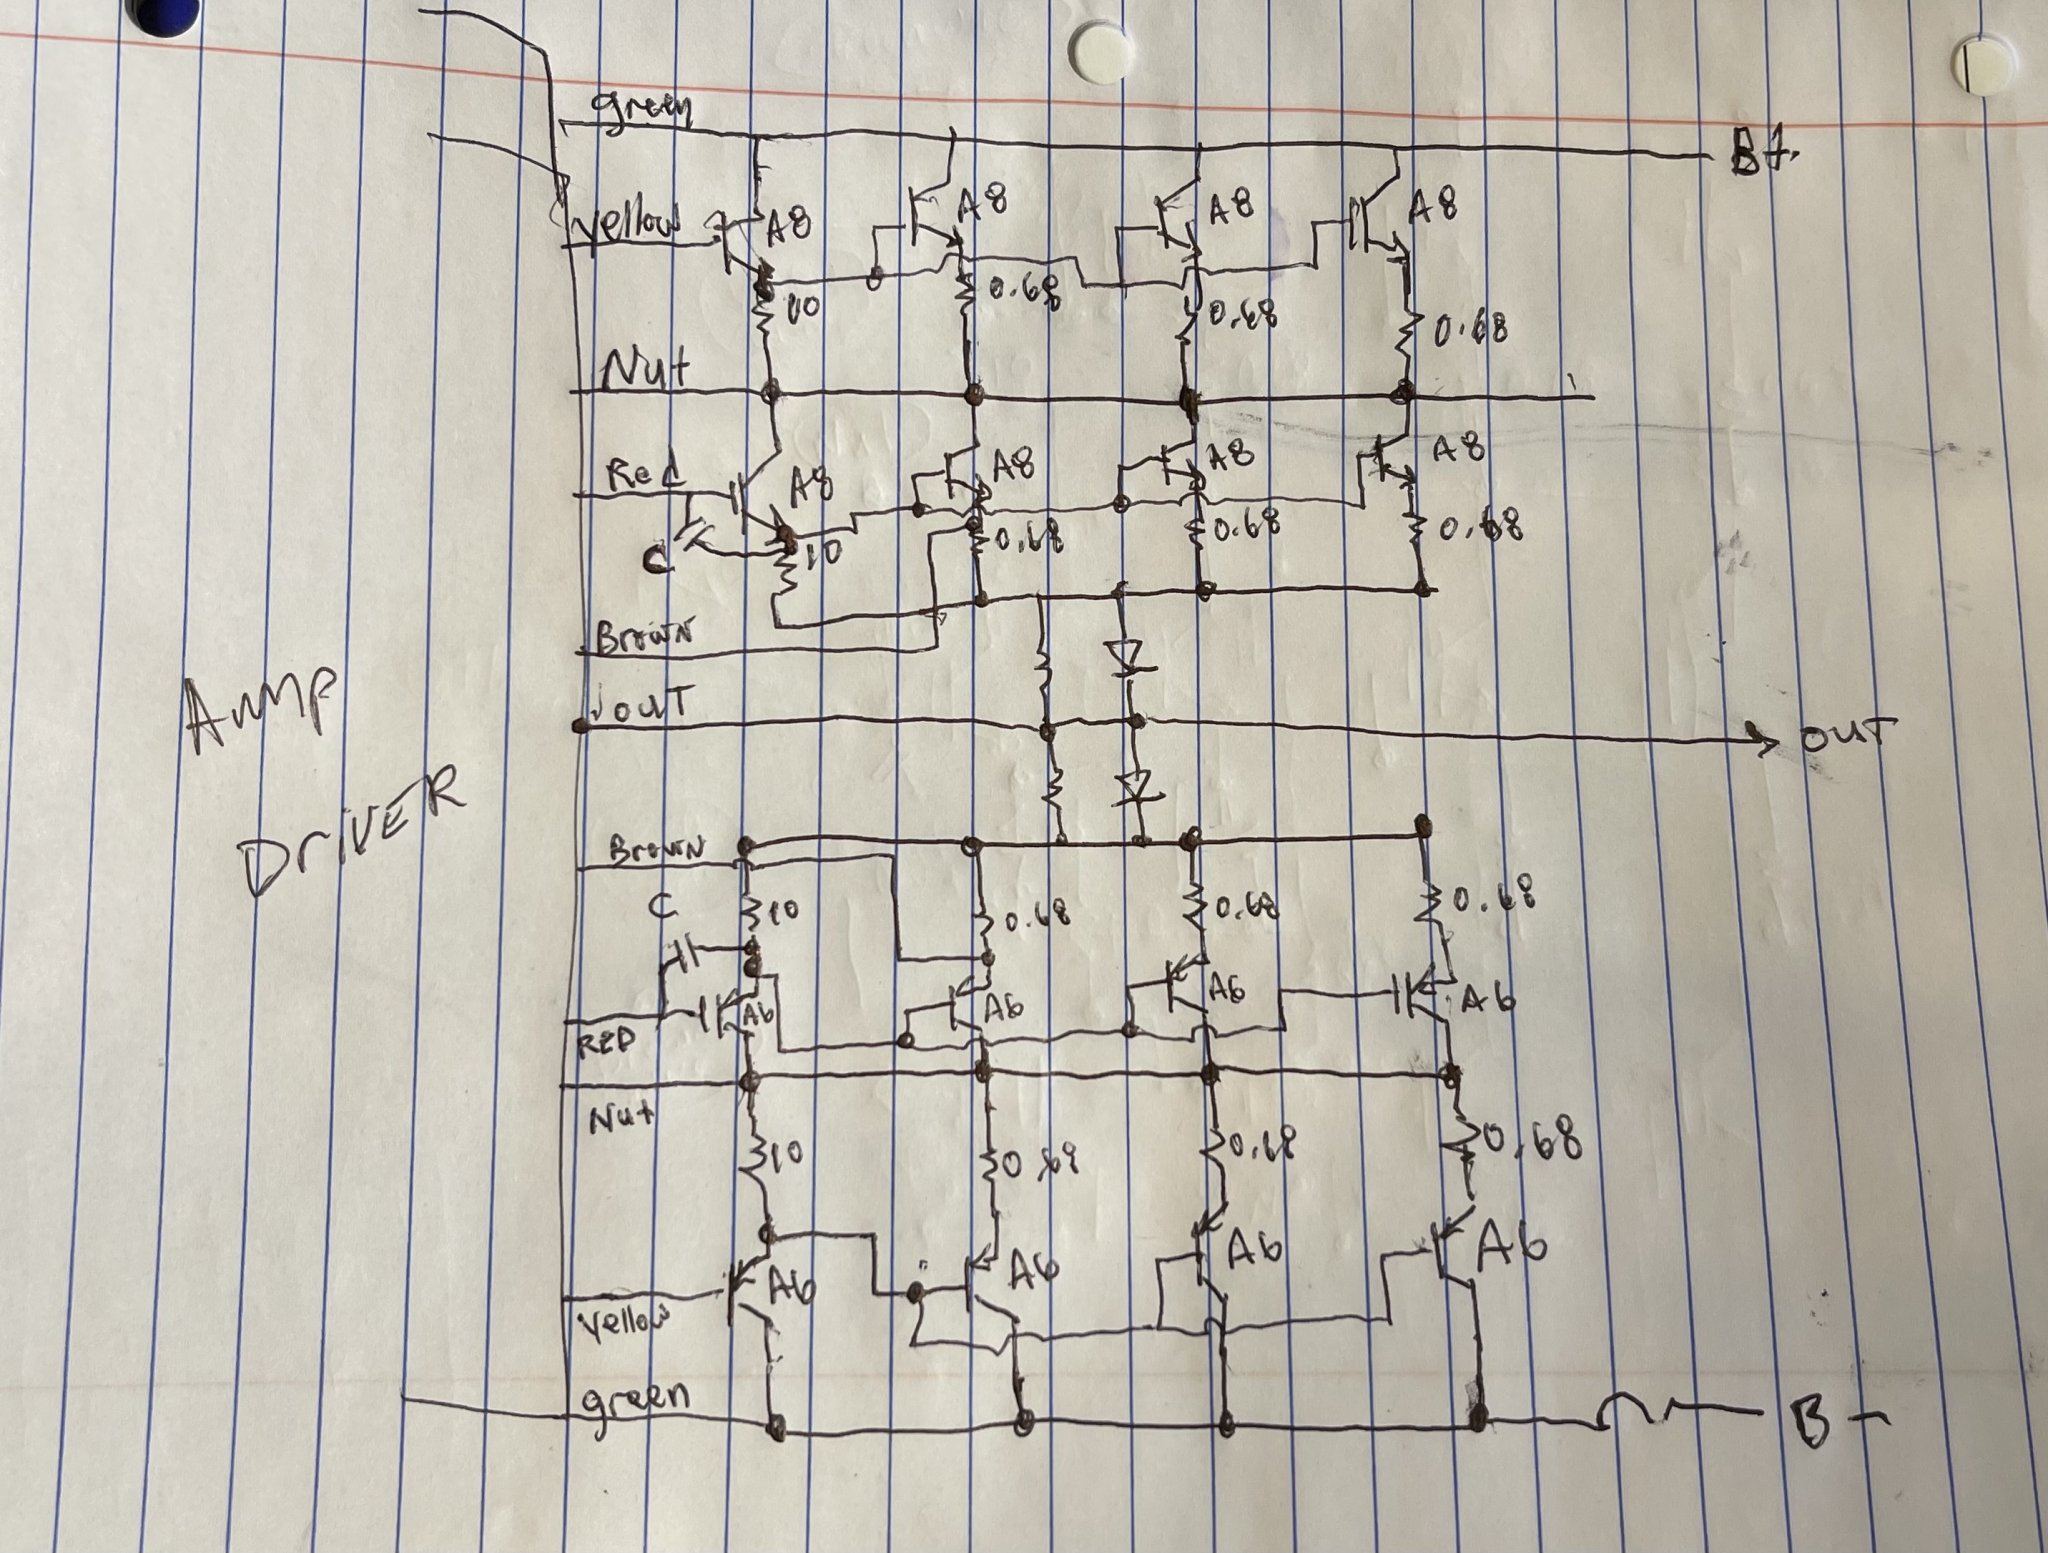 green
B+
yellow A8 A8 A8 A8
10 0.68 0.68 0.68
Nut
Red A8 A8 A8 A8
C 10 0.68 0.68 0.68
Brown
OUT OUT
Amp
DRIVER
Brown
C 10 0.68 0.68 0.68
A6 A6 A6 A6
RED
Nut
10 0.68 0.68 0.68
A6 A6 A6 A6
Yellow
green B-